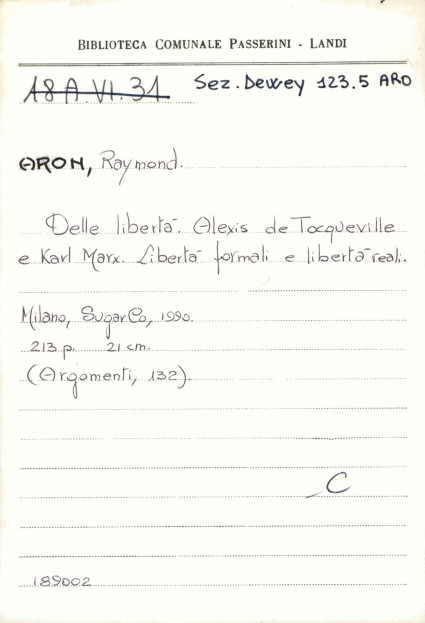 BIBLIOTECA COMUNALE PASSERINI - LANDI
18 A.VI.31 Sez. Dewey 123.5 ARO
ARON, Raymond.
Delle libertà. Alexis de Tocqueville
e Karl Marx. Libertà formali e libertà reali.
Milano, SugarCo, 1990.
213 p. 21 cm.
(Argomenti, 132).
C
189002